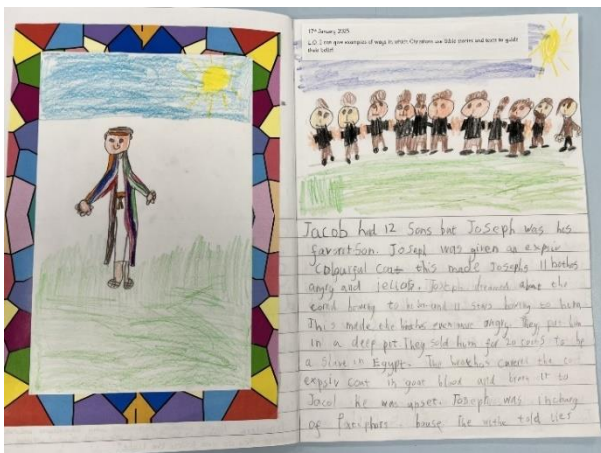 17th January 2025
L.O: I can give examples of ways in which Christians use Bible stories and texts to guide
their belief
Jacob had 12 Sons but Joseph was his
favorit son. Joseph was given an expsiv
colourful coat this made Josephs 11 bothes
angry and jellas. Joseph dreamed about the
bowing to him and 11 stars bowing to him
This made the brothes even more angry. They put him
in a deep pit They sold him for 20 coins to be
a Slave in Egypt. The brothes coverd the
expsiv coat in goat blood and it to
Jacob he was upset. Joseph was
of house The told lies